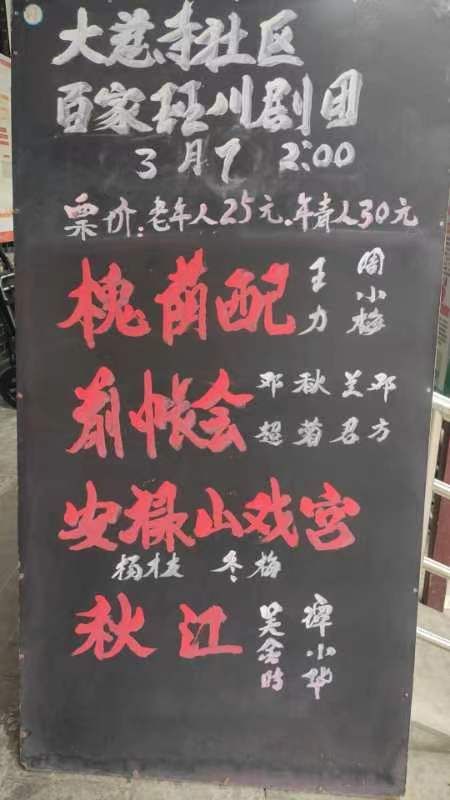 大慈寺社区
百家班川剧团
3月7 2:00
票价:老年人25元.年青人30元
槐荫配 王力 周小梅
前帐会 邓超 秋菊 兰君 邓方
安禄山戏宫
杨枝 冬梅
秋江 吴含时 谭小华